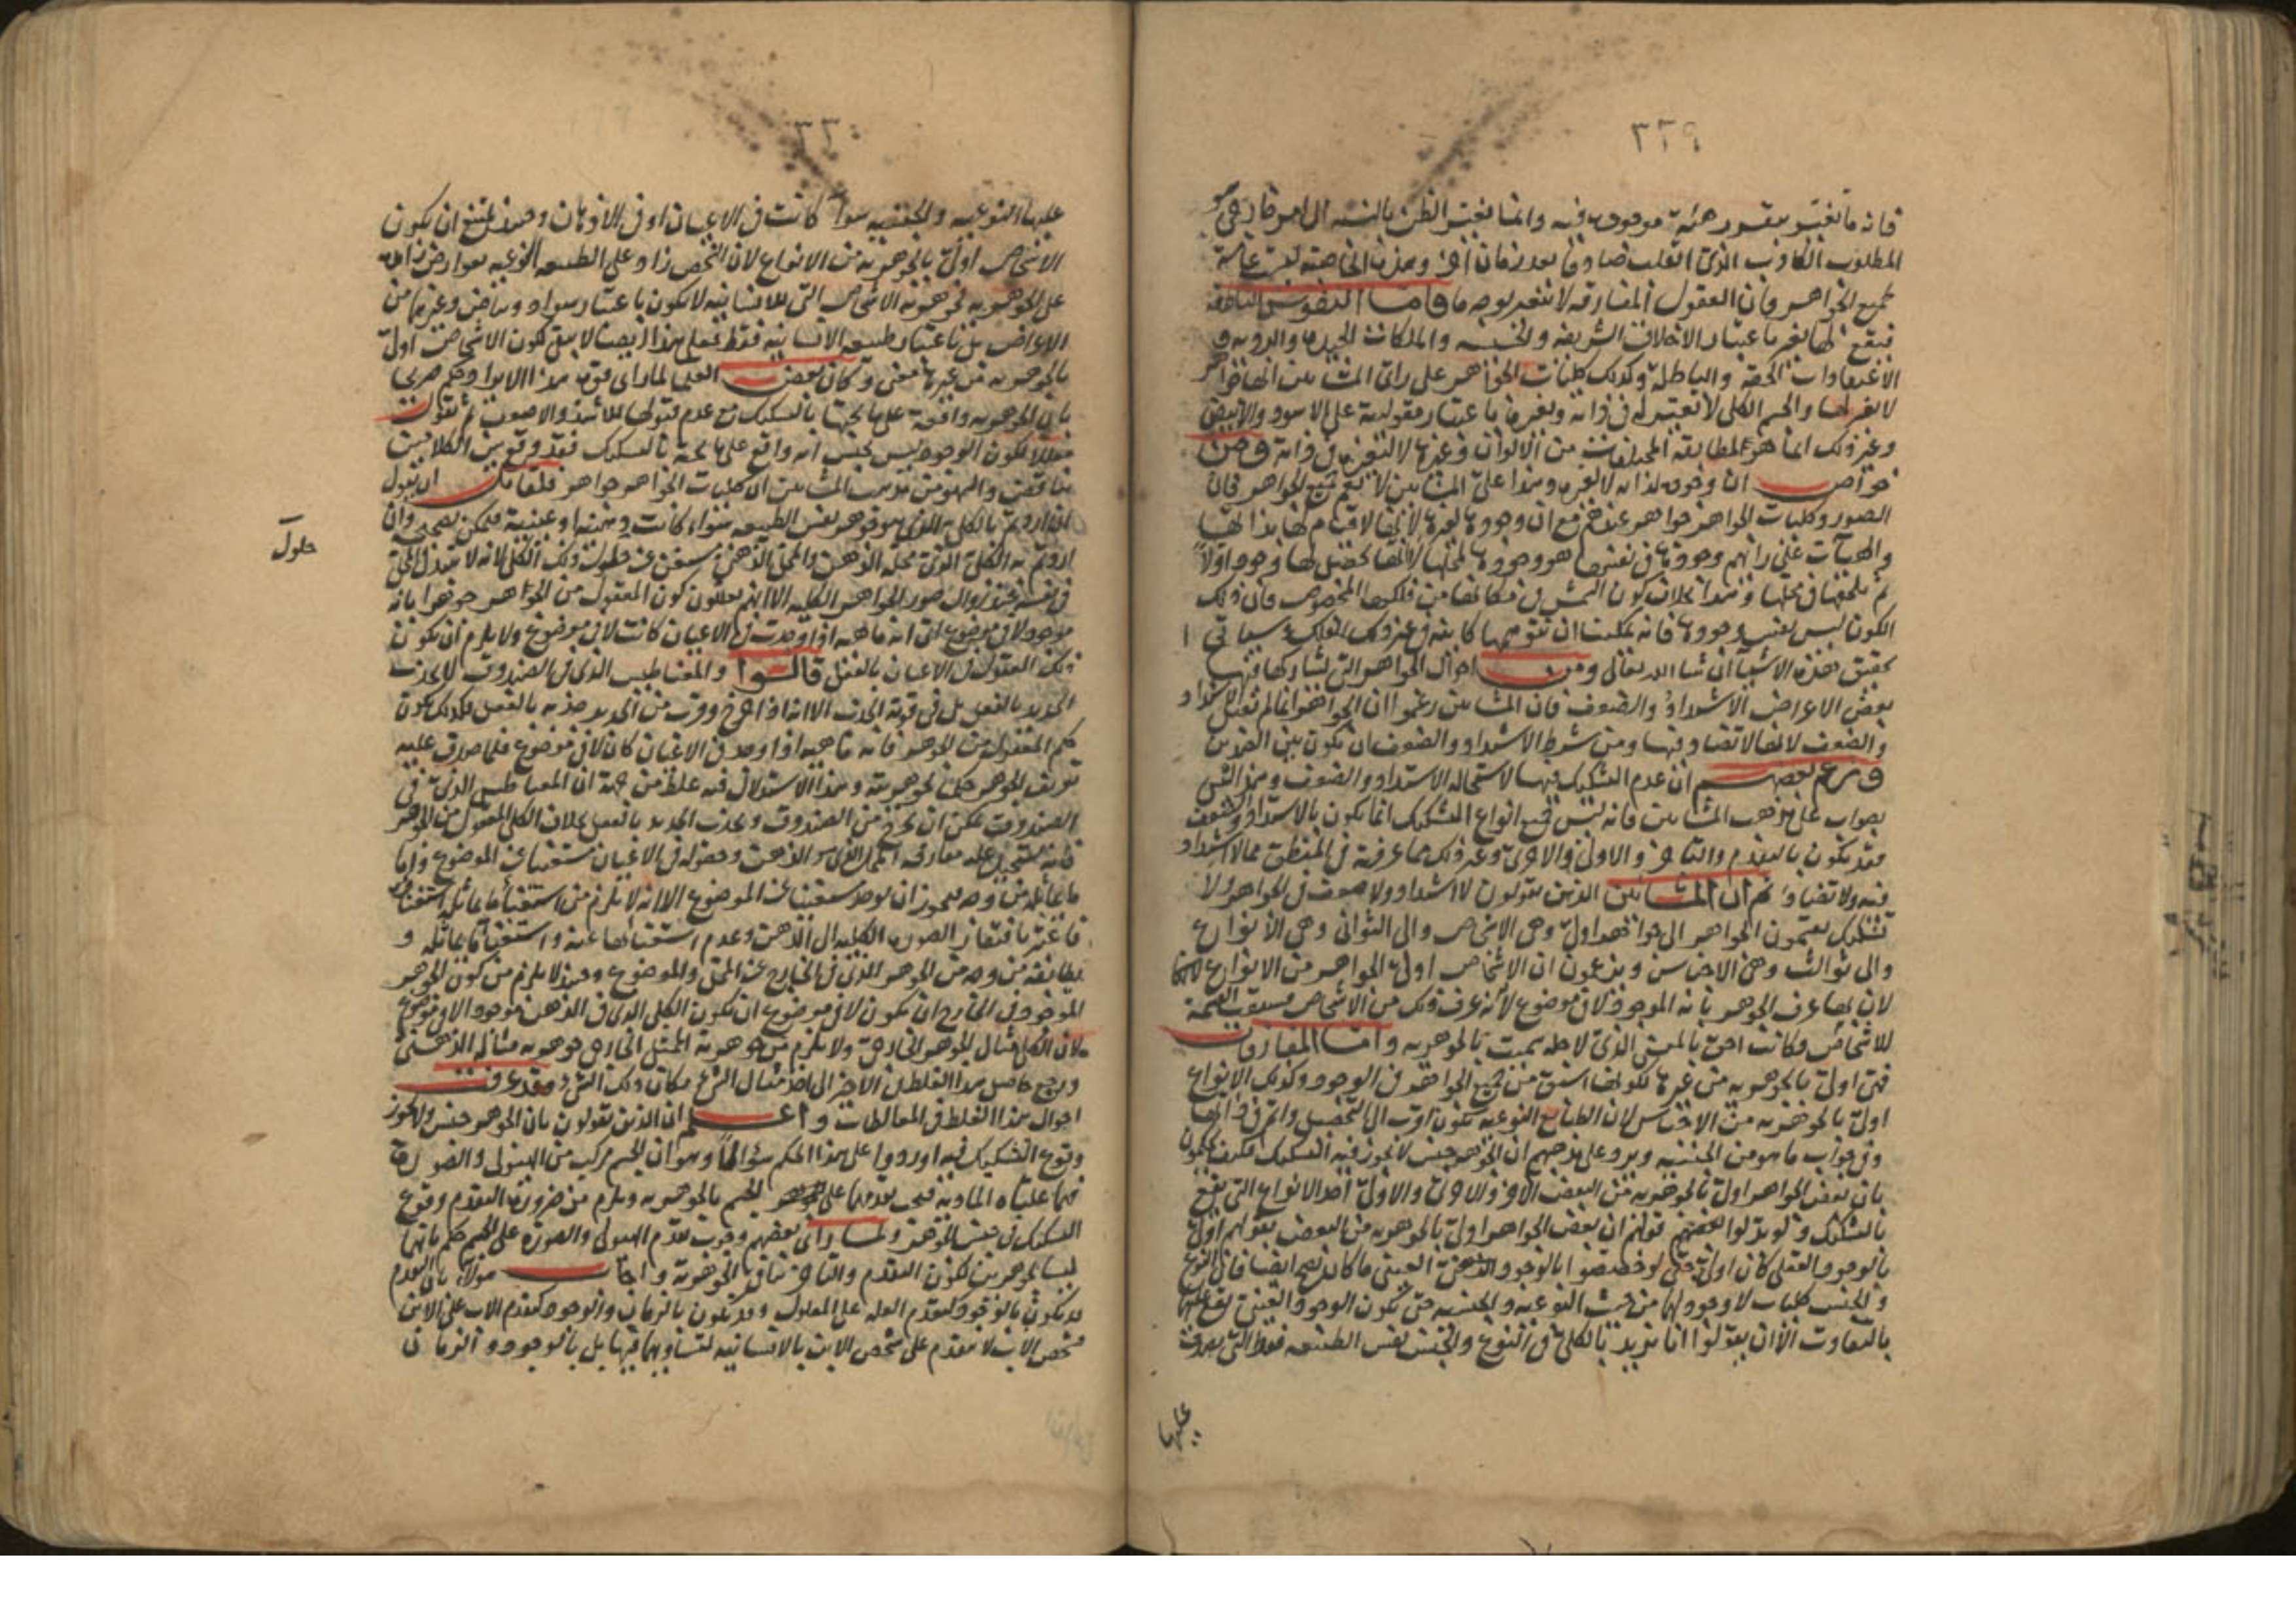 ٣٢٩
فانه ما تغير بتغير هيئة موجودة فيه وانما تغير الظن بالنسبة الى امر خارجي هو
المطلوب الكاذب الذي انقلب صادقا بعد زمان آخر وهذه الخاصة ليست عامة
لجميع الجواهر فان العقول المفارقة لا تتغير بوجه ما فاما النفوس الناطقة
فيقع لها تغير باعتبار الاخلاق الشريفة والخسيسة والملكات الجيدة والردية و
الاعتقادات الحقة والباطلة وكذلك كليات الجواهر على رأى المشائين انها جواهر
لا تغير لها والجسم الكلى لا تغير له في ذاته وتغيره باعتبار مقوليته على الاسود والابيض
وغير ذلك انما هو لمطابقة المختلفات من الالوان وغيرها لا لتغيره في ذاته ومن
خواص ان وجوده لذاته لا لغيره وهذا على المشائين لا يعم جميع الجواهر فان
الصور وكليات الجواهر جواهر عندهم مع ان وجودها لغيرها لانها لا قيام لها بذاتها
والهيآت على رأيهم وجودها في نفسها هو وجودها لمحلها لا انها يحصل لها وجود اولا
ثم يلحقها في محلها وهذا بخلاف كون الشمس في مكانها من فلكها المخصوص فان ذلك
الكون ليس نفس وجودها فانه يمكنك ان تتوهمها كائنة في غير ذلك الفلك وسيأتي
تحقيق هذه الاشيا ان شا الله تعالى ومن احوال الجواهر التي تشاركها فيها
بعض الاعراض الاشتداد والضعف فان المشائين زعموا ان الجواهر انما لم تقبل الاشتداد
والضعف لانها لا تضاد فيها ومن شرط الاشتداد والضعف ان يكون بين الضدين
وزعم بعضهم ان عدم التشكيك فيها لاستحالة الاشتداد والضعف وهذا ليس
بصواب على مذهب المشائين فانه ليس جميع انواع التشكيك انما يكون بالاشتداد والضعف
فقد يكون بالتقدم والتأخر والاولى والاحرى وغير ذلك مما عرفته في المنطق مما لا اشتداد
فيه ولا تضاد ثم ان المشائين الذين يقولون لا اشتداد ولا ضعف في الجواهر ولا
تشكيك يقسمون الجواهر الى جواهر اولى وهي الاشخاص والى الثواني وهي الانواع
والى ثوالث وهي الاجناس ويزعمون ان الاشخاص اولى بالجواهر من الانواع لانها
لان بها عرف الجوهر بانه الموجود لا في موضوع لانه عرف ذلك من الاشخاص فسبقت التسمية
للاشخاص فكانت احق بالمعنى الذي لاجله سميت بالجوهرية واما المفارقات
فهي اولى بالجوهرية من غيرها لكونها اسبق من جميع الجواهر في الوجود وكذلك الانواع
اولى بالجوهرية من الاجناس لان الطبائع النوعية تكون اقرب الى التحصيل واتم في ذاتها
وفي جواب ما هو من الجنسية ويرد على مذهبهم ان الجوهر جنس لا يجوز فيه التشكيك فكيف يحكمون
بان بعض الجواهر اولى بالجوهرية من البعض الآخر والاولى احد الانواع التي تقع
بالتشكيك ولو بدلوا بعضهم قولهم ان بعض الجواهر اولى بالجوهرية من البعض بقولهم اولى
بالوجود العقلى كان اولى حتى لو خصصوا بالوجود العيني ما كان يصح ايضا فان النوع
والجنس كليات لا وجود لها من حيث النوعية والجنسية حتى يكون الوجود العيني يقع عليها
بالتفاوت الا ان يقولوا انا نريد بالكلى في النوع والجنس نفس الطبيعة فقط التي يصدق
عليها
٣٣٠
عليها النوعية والجنسية سوآ كانت في الاعيان او في الاذهان وحينئذ يمتنع ان يكون
الاشخاص اولى بالجوهرية من الانواع لان الشخص زاد على الطبيعة النوعية بعوارض زائدة
على الجوهرية فجوهرية الاشخاص التي للانسانية لا يكون باعتبار سواد وبياض وغيرهما من
الاعراض بل باعتبار طبيعة الانسانية فقط فعلى هذا ايضا لا يبقى لكون الاشخاص اولى
بالجوهرية من غيرها معنى وكان بعض العلما لما رأى قوة هذا الايراد حكم صريحا
بان الجوهرية واقعة على ما تحتها بالتشكيك مع عدم قبولها للاشد والاضعف ثم نقول
فقد وقع بين الكلامين
تناقض والمهم من مذهب المشائين ان كليات الجواهر جواهر فلقائل ان يقول
ان اردتم بالكلى الذي هو جوهر نفس الطبيعة سواء كانت ذهنية او عينية فيمكن تصحيحه وان
اردتم به الكلى الذي محله الذهن والمحل الذهنى مستغن عن حلول ذلك الكلى لانه لا تتبدل المحل
في نفسه عند زوال صور الجواهر الكلية الا انهم يعللون كون المعقول من الجواهر جوهرا بانه
موجود لا في موضوع اى انه ماهية اذا وجدت في الاعيان كانت لا في موضوع ولا يلزم ان يكون
ذلك المعقول في الاعيان بالفعل قالوا والمغناطيس الذي في الصندوق لا يجذب
الحديد بالفعل بل في قوته الجذب الا انه اذا خرج وقرب من الحديد جذبه بالفعل فكذلك يكون
حكم المعقول من الجوهر فانه ماهية اذا وجد في الاعيان كان لا في موضوع فلما صدق عليه
تعريف الجوهر حكمنا بجوهريته وهذا الاستدلال فيه غلط من جهة ان المغناطيس الذي في
الصندوق يمكن ان يخرج من الصندوق ويجذب الحديد بالفعل بخلاف الكلى المعقول من الجوهر
فانه يستحيل عليه مفارقة المحل الذي هو الذهن وحصوله في الاعيان مستغنيا عن الموضوع واما
ما يماثله من وجه فيجوز ان يوجد مستغنيا عن الموضوع الا انه لا يلزم من استغناء ما يماثله استغناؤه
فاعتبر بافتقار الصورة الكلية الى الذهن وعدم استغنائها عنه واستغناء ما يماثله و
يطابقه من وجه من الجوهر الذي في الخارج عن المحل والموضوع وحينئذ لا يلزم من كون الجوهر
الموجود في الخارج ان يكون لا في موضوع ان يكون الكلى الذي في الذهن موجودا لا في موضوع
لان الكلى مثال للجوهر الخارجى ولا يلزم من جوهرية الممثل الخارجى جوهرية مثاله الذهنى
ويرجع حاصل هذا الغلط في الآخر الى اخذ مثال الشئ مكان ذلك الشئ وقد عرفت
احوال هذا الغلط في المغالطات واعلم ان الذين يقولون بان الجوهر جنس ولا يجوز
وقوع التشكيك فيه اوردوا على هذا الحكم سؤالا وهو ان الجسم مركب من الهيولى والصورة
فهما علتاه المادية فيجب تقدمهما على الجسم بالجوهرية ويلزم من ضرورة التقدم وقوع
التشكيك في جنس الجوهر ولما رأى بعضهم وجوب تقدم الهيولى والصورة على الجسم حكم بانهما
ليسا بجوهرين لكون التقدم والتأخر ينافى الجوهرية واجاب هؤلاء بان التقدم
قد يكون بالوجود كتقدم العلة على المعلول وقد يكون بالزمان والوجود كتقدم الاب على الابن
فشخص الاب لا يتقدم على شخص الابن بالانسانية لتساويهما فيها بل بالوجود والزمان
حلول